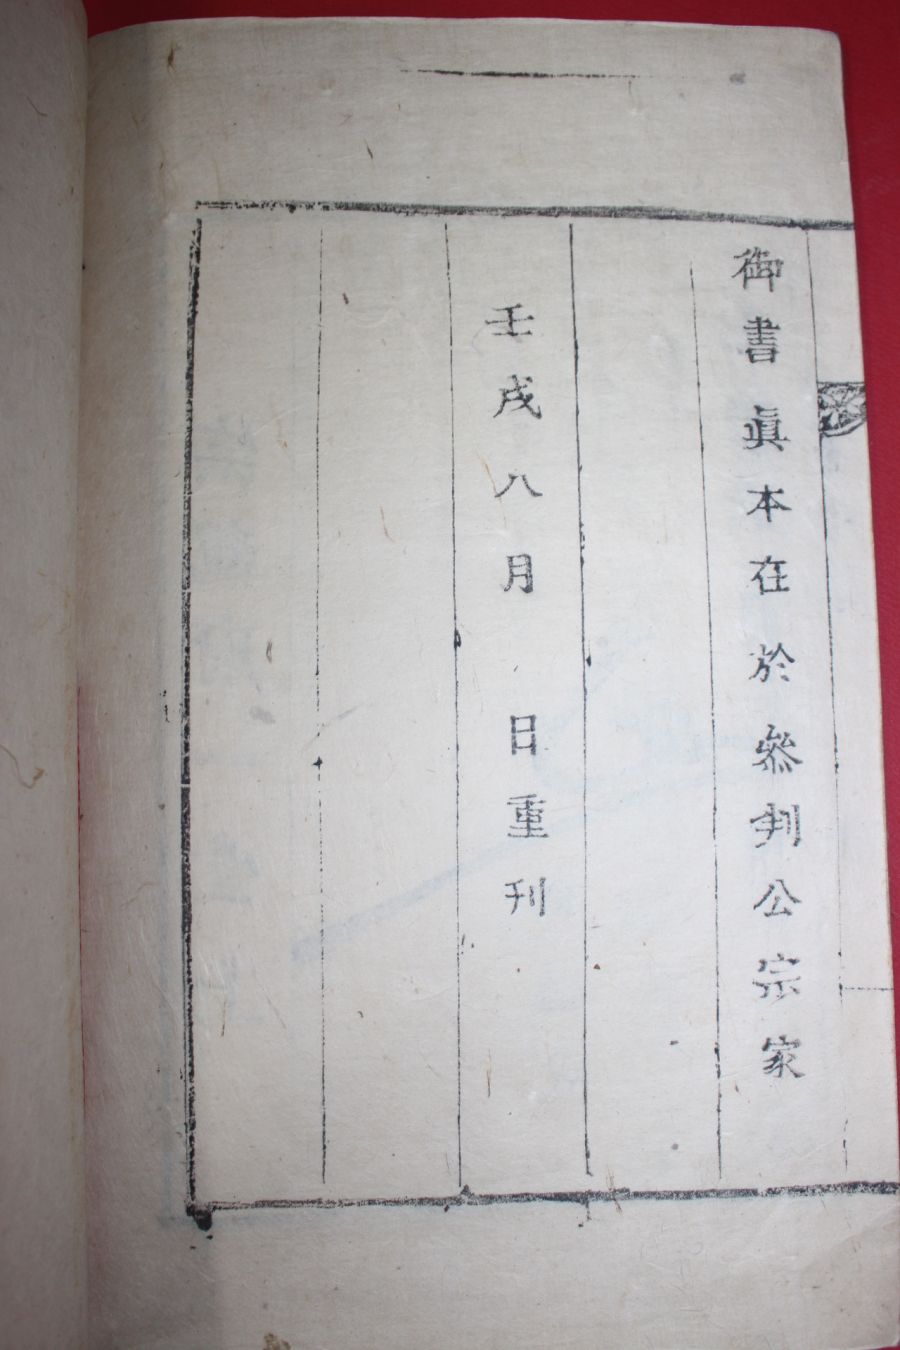 御書眞本在於參判公宗家
壬戌八月 日重刊